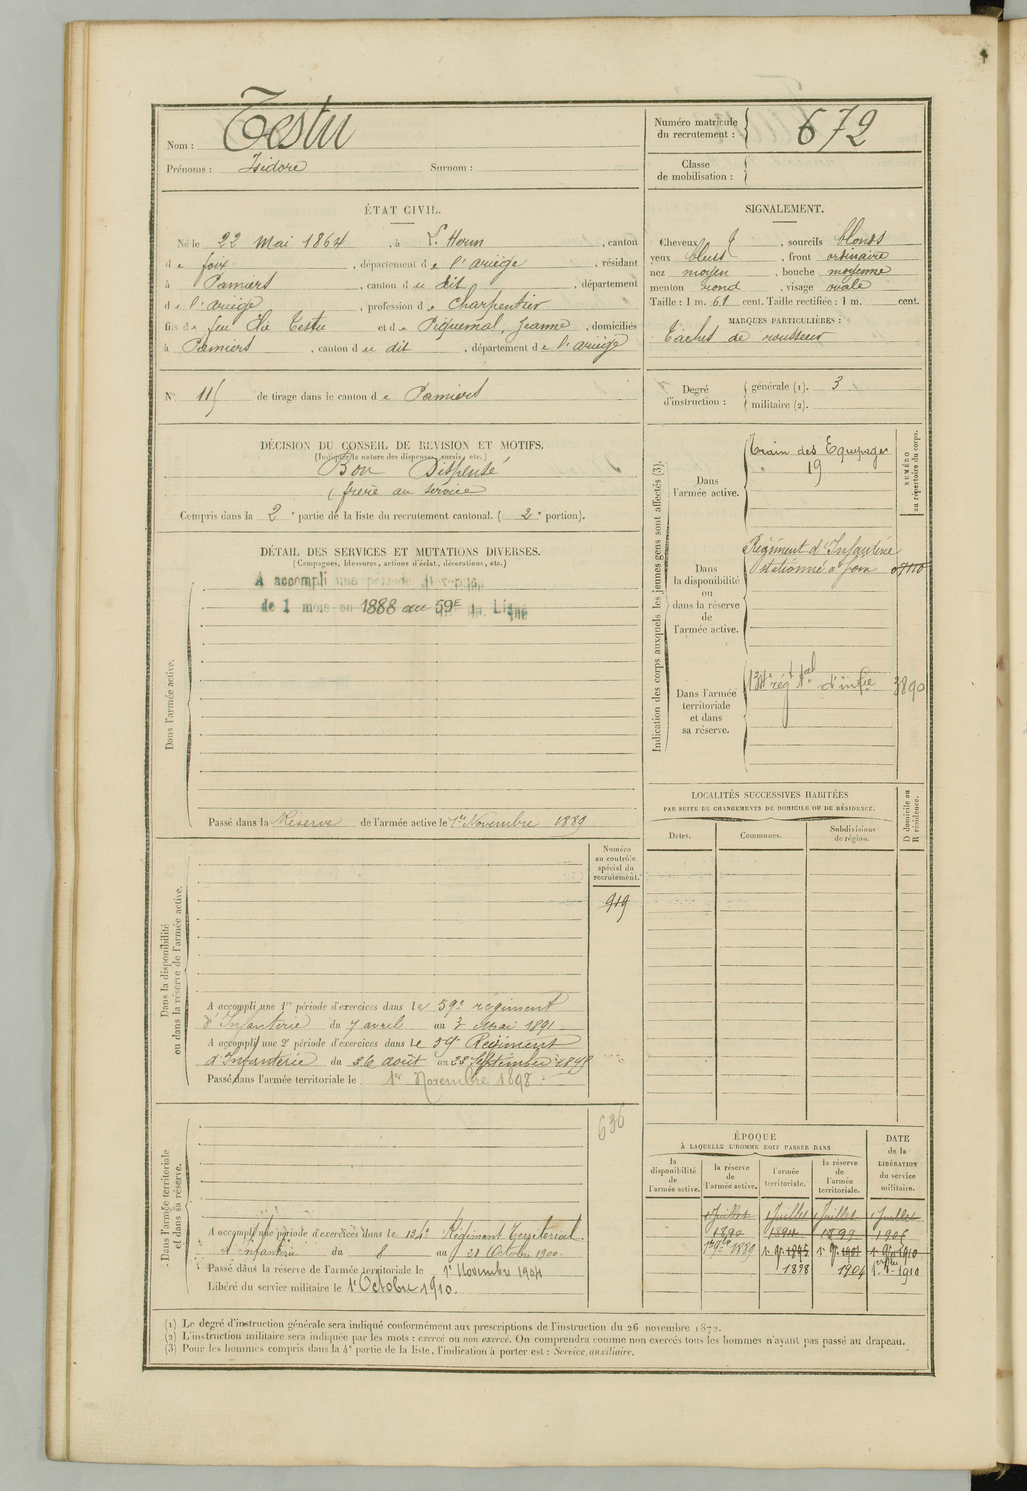 Nom : Testu
Prénoms : Isidore Surnom :
Numéro matricule du recrutement : 672
Classe de mobilisation :
ÉTAT CIVIL.
Né le 22 Mai 1864, à L'Herm, canton
de foix, département de l'ariège, résidant
à Pamiers, canton du dit, département
de l'ariège, profession de Charpentier
fils de feu Elie Testu et de Piquemal, Jeanne, domiciliés
à Pamiers, canton du dit, département de l'ariège
SIGNALEMENT.
Cheveux et, sourcils blonds
yeux bleus, front ordinaire
nez moyen, bouche moyenne
menton rond, visage ovale
Taille : 1 m. 61 cent. Taille rectifiée : 1 m. cent.
MARQUES PARTICULIÈRES :
Taches de rousseur
N° 115 de tirage dans le canton de Pamiers
Degré d'instruction :
générale (1). 3
militaire (2).
DÉCISION DU CONSEIL DE REVISION ET MOTIFS.
(Indiquer la nature des dispenses, sursis, etc.)
Bon Dispensé
frère au service
Compris dans la 2e partie de la liste du recrutement cantonal. (2e portion).
DÉTAIL DES SERVICES ET MUTATIONS DIVERSES.
(Campagnes, blessures, actions d'éclat, décorations, etc.)
Dans l'armée active.
A accompli une période d'exercice
de 1 mois en 1888 au 59E de Ligne
Passé dans la Réserve de l'armée active le 1er Novembre 1889
Dans la disponibilité ou dans la réserve de l'armée active.
Numéro au contrôle spécial du recrutement.
919
A accompli une 1re période d'exercices dans le 59e régiment
d'Infanterie du 7 avril au 3 Mai 1891
A accompli une 2e période d'exercices dans le 59e Régiment
d'Infanterie du 26 août au 22 Septembre
Passé dans l'armée territoriale le 1er Novembre 1898
Dans l'armée territoriale et dans sa réserve.
636
A accompli une période d'exercices dans le 134e Régiment Territorial
d'Infanterie du 8 au 21 Octobre 1900.
Passé dans la réserve de l'armée territoriale le 1er Novembre 1904
Libéré du service militaire le 1er Octobre 1910.
Indication des corps auxquels les jeunes gens sont affectés (3).
NUMÉRO au répertoire du corps.
Dans l'armée active.
Train des Equipages
19
Dans la disponibilité ou dans la réserve de l'armée active.
Régiment d'Infanterie
stationné à foix
Dans l'armée territoriale et dans sa réserve.
134e régt tal d'infie 3890
LOCALITÉS SUCCESSIVES HABITÉES
PAR SUITE DE CHANGEMENTS DE DOMICILE OU DE RÉSIDENCE.
Dates. Communes. Subdivisions de région. D domicile ou R résidence.
ÉPOQUE
À LAQUELLE L'HOMME DOIT PASSER DANS
la disponibilité de l'armée active.
la réserve de l'armée active.
l'armée territoriale.
la réserve de l'armée territoriale.
DATE de la LIBÉRATION du service militaire.
1 Juillet 1 Juillet 1 Juillet 1 Juillet
1890 1894 1899
1898 1904 1910
(1) Le degré d'instruction générale sera indiqué conformément aux prescriptions de l'instruction du 26 novembre 1872.
(2) L'instruction militaire sera indiquée par les mots : exercé ou non exercé. On comprendra comme non exercés tous les hommes n'ayant pas passé au drapeau.
(3) Pour les hommes compris dans la 4e partie de la liste, l'indication à porter est : Service auxiliaire.